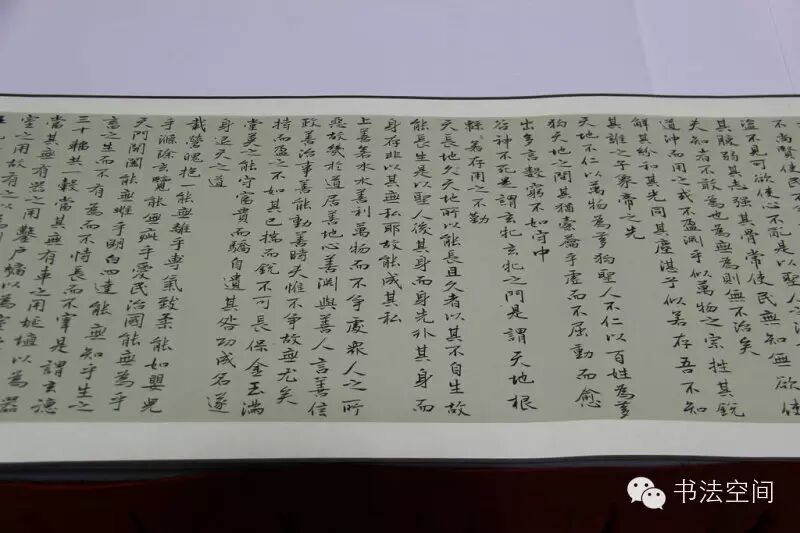 不尚賢使民不
盜不見可欲使心不亂是以聖人之治
其腹弱其志強其骨常使民無知無欲使
夫知者不敢為也為無為則無不治矣
道沖而用之或不盈淵乎似萬物之宗挫其銳
解其紛和其光同其塵湛乎似若存吾不知
其誰之子象帝之先
天地不仁以萬物為芻狗聖人不仁以百姓為芻
狗天地之間其猶橐籥乎虛而不屈動而愈
出多言數窮不如守中
谷神不死是謂玄牝玄牝之門是謂天地根
緜緜若存用之不勤
天長地久天地所以能長且久者以其不自生故
能長生是以聖人後其身而身先外其身而
身存非以其無私耶故能成其私
上善若水水善利萬物而不爭處衆人之所
惡故幾於道居善地心善淵與善人言善信
政善治事善能動善時夫惟不爭故無尤矣
持而盈之不如其已揣而銳不可長保金玉滿
堂莫之能守富貴而驕自遺其咎功成名遂
身退天之道
載營魄抱一能無離乎專氣致柔能如嬰兒
乎滌除玄覽能無疵乎愛民治國能無為乎
天門開闔能無雌乎明白四達能無知乎生之
畜之生而不有為而不恃長而不宰是謂玄德
三十輻共一轂當其無有車之用埏埴以為器
當其無有器之用鑿戶牖以為室
室之用故有之以為利
书法空间